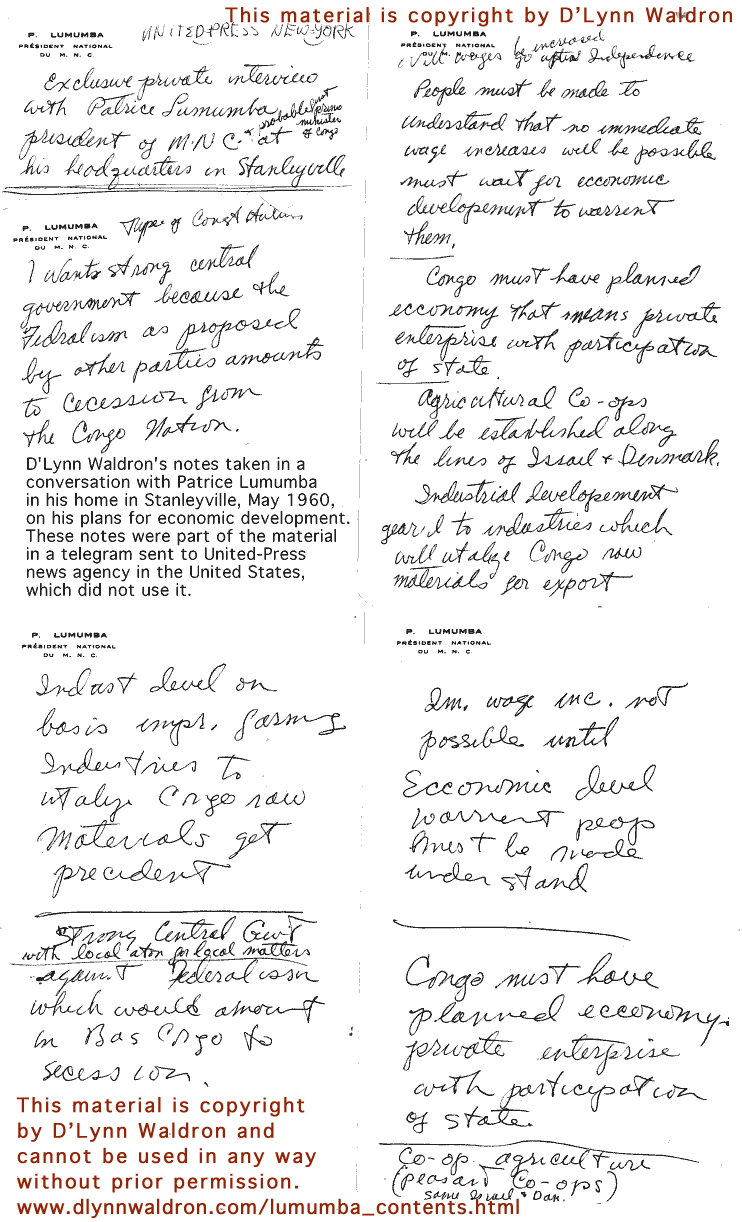 This material is copyright by D'Lynn Waldron
P. LUMUMBA
PRÉSIDENT NATIONAL
DU M. N. C.
UNITED PRESS NEW YORK
Exclusive private interview
with Patrice Lumumba,
president of M.N.C. + probable first prime minister of Congo at
his headquarters in Stanleyville
P. LUMUMBA
PRÉSIDENT NATIONAL
DU M. N. C.
Type of Constitution
I Wants strong central
government because the
Fedralism as proposed
by other parties amounts
to cecession from
the Congo Nation.
D'Lynn Waldron's notes taken in a
conversation with Patrice Lumumba
in his home in Stanleyville, May 1960,
on his plans for economic development.
These notes were part of the material
in a telegram sent to United-Press
news agency in the United States,
which did not use it.
P. LUMUMBA
PRÉSIDENT NATIONAL
DU M. N. C.
Indust devel on
basis impr. farming
Industries to
utalize Congo raw
Materials get
precident
Strong Central Gov't
with local aton on local matters
against Federalissm
which would amount
in Bas Congo to
secession.
P. LUMUMBA
PRÉSIDENT NATIONAL
DU M. N. C.
Will wages be increased after Independence
People must be made to
understand that no immediate
wage increases will be possible
must wait for ecconomic
developement to warrent
them.
Congo must have planned
ecconomy that means private
enterprise with participation
of state.
Agricultural Co-ops
will be established along
the lines of Israil + Denmark.
Industrial developement
geared to industries which
will utalize Congo raw
materials for export
P. LUMUMBA
PRÉSIDENT NATIONAL
DU M. N. C.
Im. wage inc. not
possible until
Ecconomic devel
warrent peop
Must be made
under stand
Congo must have
planned ecconomy.
private enterprise
with participation
of state.
Co-op. agriculture
(peasant Co-ops)
same Israel + Dan.
This material is copyright
by D'Lynn Waldron and
cannot be used in any way
without prior permission.
www.dlynnwaldron.com/lumumba_contents.html